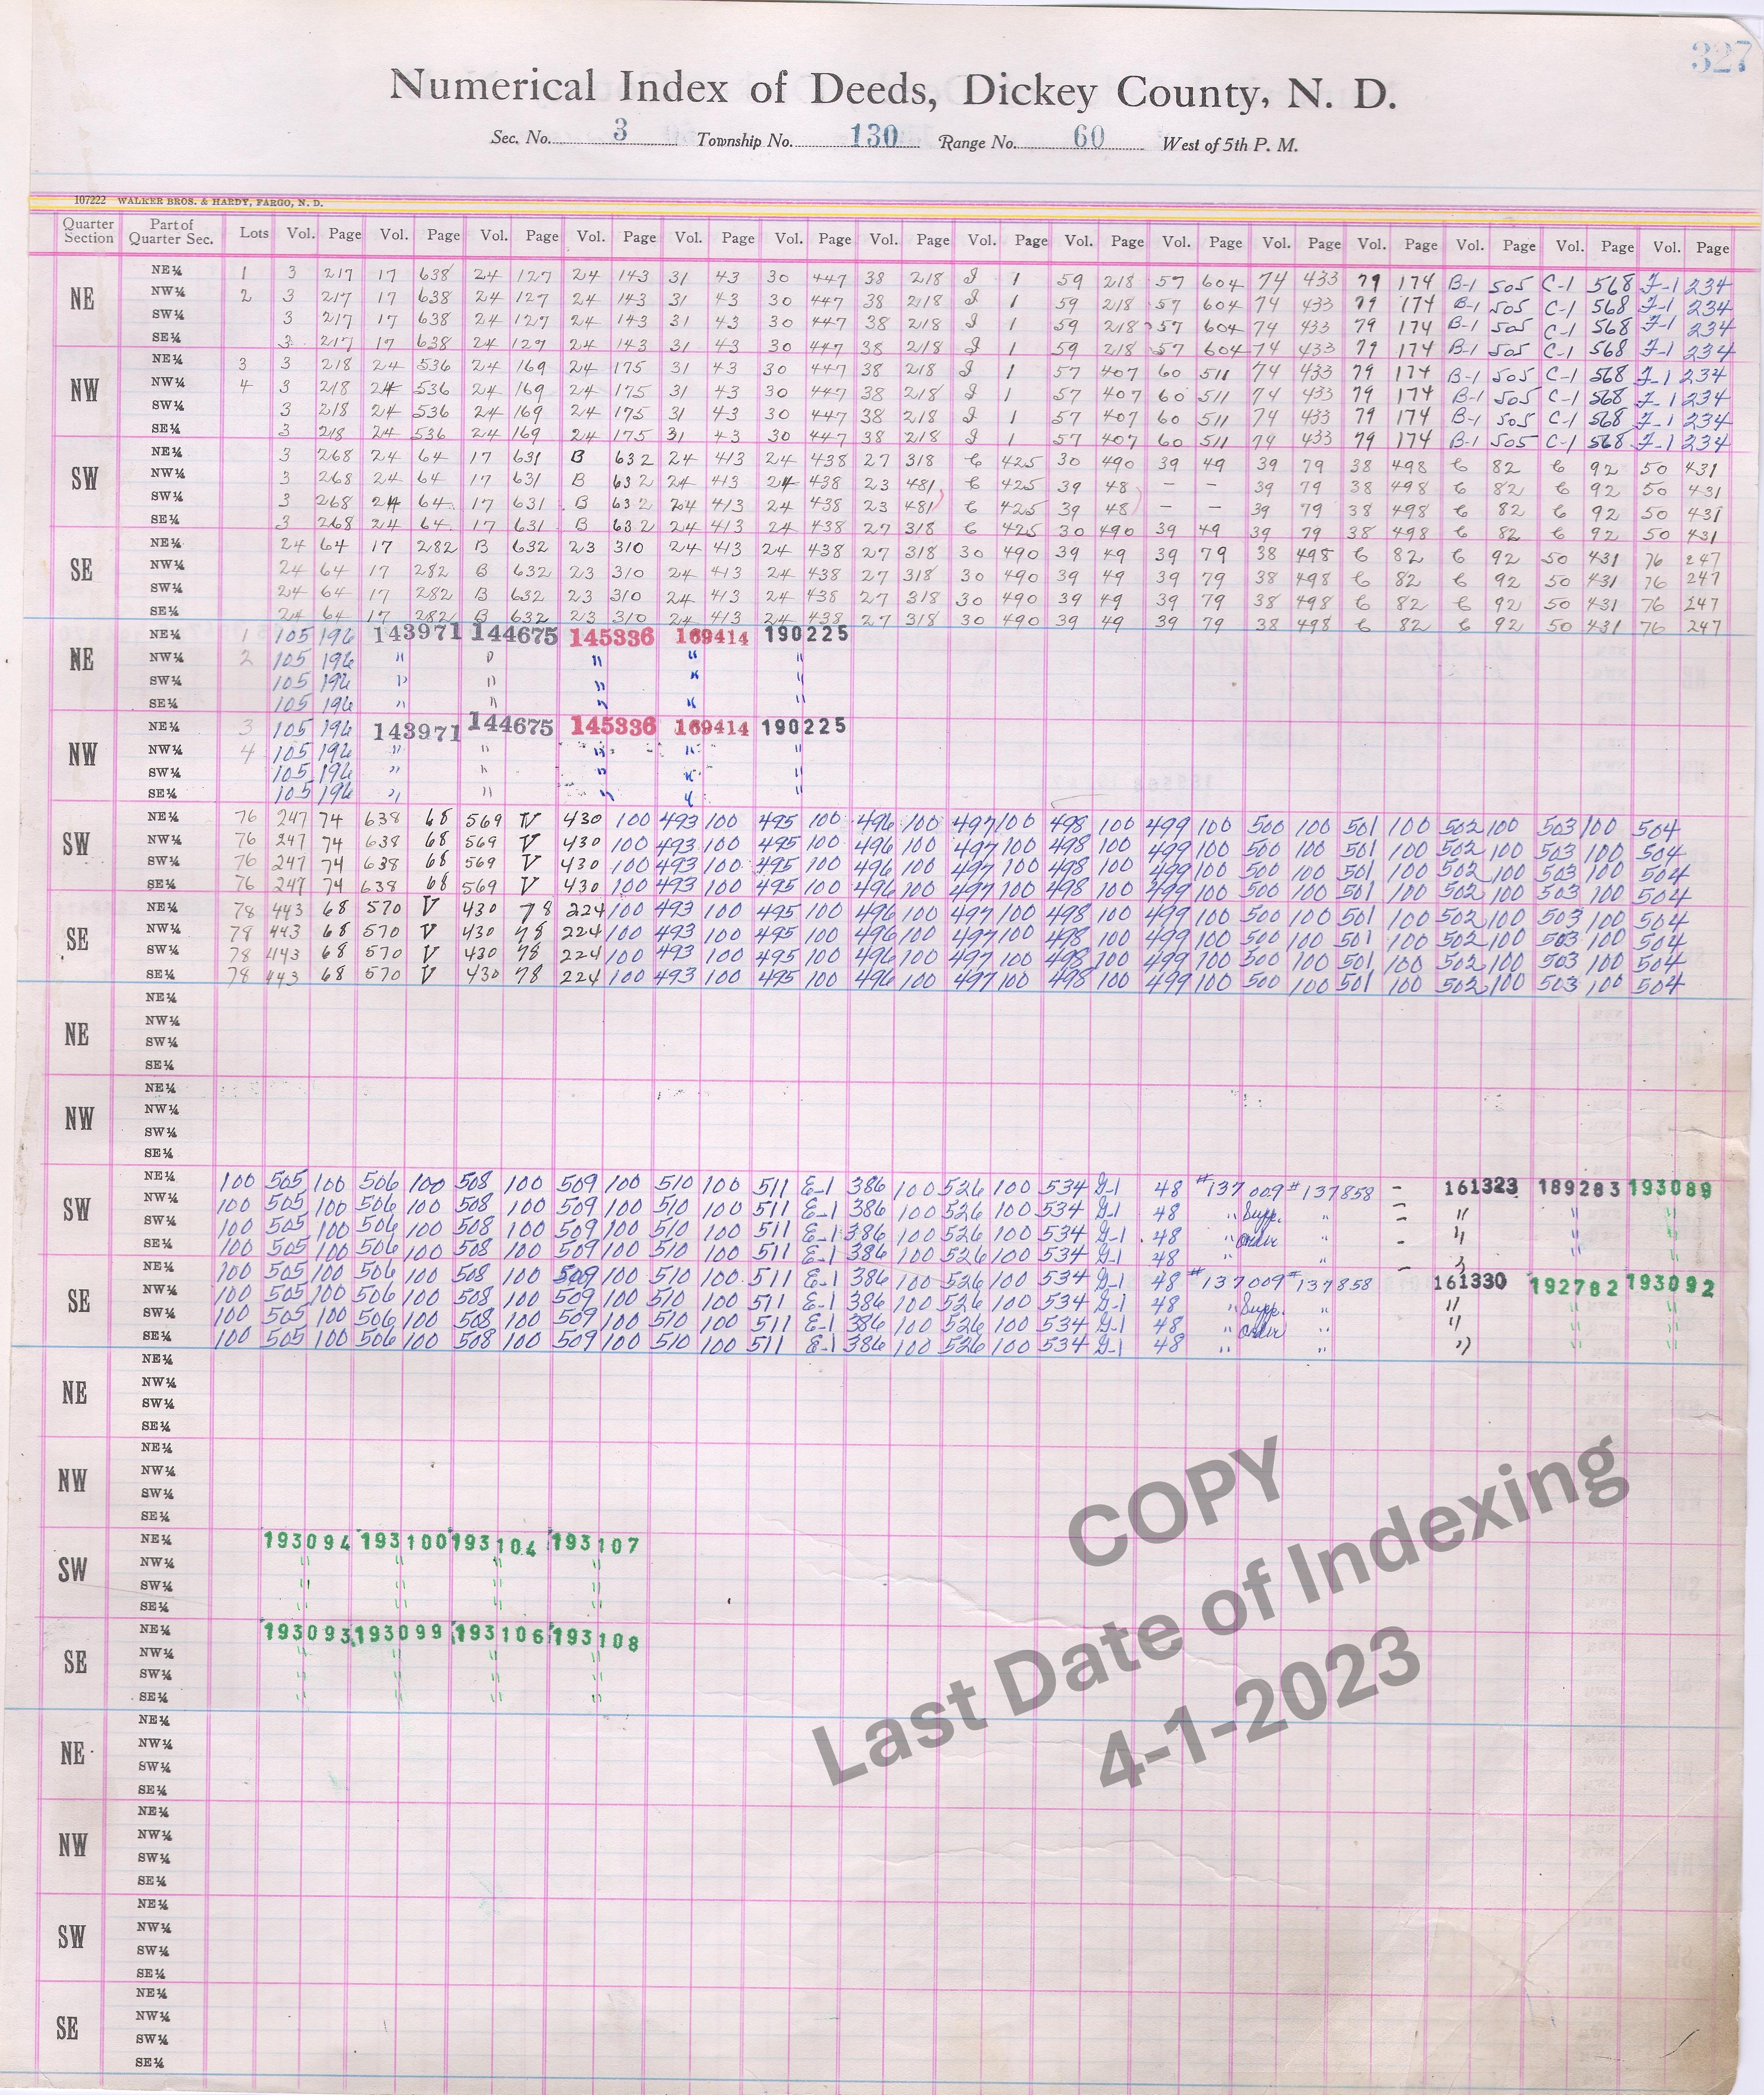 327
Numerical Index of Deeds, Dickey County, N. D.
Sec. No. 3 Township No. 130 Range No. 60 West of 5th P. M.
107222 WALKER BROS. & HARDY, FARGO, N. D.
Quarter Section Part of Quarter Sec. Lots Vol. Page Vol. Page Vol. Page Vol. Page Vol. Page Vol. Page Vol. Page Vol. Page Vol. Page Vol. Page Vol. Page Vol. Page Vol. Page Vol. Page Vol. Page
NE
NE¼ 1 3 217 17 638 24 127 24 143 31 43 30 447 38 218 J 1 59 218 57 604 74 433 79 174 B-1 505 C-1 568 F-1 234
NW¼ 2 3 217 17 638 24 127 24 143 31 43 30 447 38 218 J 1 59 218 57 604 74 433 79 174 B-1 505 C-1 568 F-1 234
SW¼ 3 217 17 638 24 127 24 143 31 43 30 447 38 218 J 1 59 218 57 604 74 433 79 174 B-1 505 C-1 568 F-1 234
SE¼ 3 217 17 638 24 127 24 143 31 43 30 447 38 218 J 1 59 218 57 604 74 433 79 174 B-1 505 C-1 568 F-1 234
NW
NE¼ 3 3 218 24 536 24 169 24 175 31 43 30 447 38 218 J 1 57 407 60 511 74 433 79 174 B-1 505 C-1 568 F-1 234
NW¼ 4 3 218 24 536 24 169 24 175 31 43 30 447 38 218 J 1 57 407 60 511 74 433 79 174 B-1 505 C-1 568 F-1 234
SW¼ 3 218 24 536 24 169 24 175 31 43 30 447 38 218 J 1 57 407 60 511 74 433 79 174 B-1 505 C-1 568 F-1 234
SE¼ 3 218 24 536 24 169 24 175 31 43 30 447 38 218 J 1 57 407 60 511 74 433 79 174 B-1 505 C-1 568 F-1 234
SW
NE¼ 3 268 24 64 17 631 B 632 24 413 24 438 27 318 C 425 30 490 39 49 39 79 38 498 C 82 C 92 50 431
NW¼ 3 268 24 64 17 631 B 632 24 413 24 438 23 481 C 425 39 48 – – 39 79 38 498 C 82 C 92 50 431
SW¼ 3 268 24 64 17 631 B 632 24 413 24 438 23 481 C 425 39 48 – – 39 79 38 498 C 82 C 92 50 431
SE¼ 3 268 24 64 17 631 B 632 24 413 24 438 27 318 C 425 30 490 39 49 39 79 38 498 C 82 C 92 50 431
SE
NE¼ 24 64 17 282 B 632 23 310 24 413 24 438 27 318 30 490 39 49 39 79 38 498 C 82 C 92 50 431 76 247
NW¼ 24 64 17 282 B 632 23 310 24 413 24 438 27 318 30 490 39 49 39 79 38 498 C 82 C 92 50 431 76 247
SW¼ 24 64 17 282 B 632 23 310 24 413 24 438 27 318 30 490 39 49 39 79 38 498 C 82 C 92 50 431 76 247
SE¼ 24 64 17 282 B 632 23 310 24 413 24 438 27 318 30 490 39 49 39 79 38 498 C 82 C 92 50 431 76 247
NE
NE¼ 1 105 196 143971 144675 145336 169414 190225
NW¼ 2 105 196 " " " " "
SW¼ 105 196 " " " " "
SE¼ 105 196 " " " " "
NW
NE¼ 3 105 196 143971 144675 145336 169414 190225
NW¼ 4 105 196 " " " " "
SW¼ 105 196 " " " " "
SE¼ 105 196 " " " " "
SW
NE¼ 76 247 74 638 68 569 V 430 100 493 100 495 100 496 100 497 100 498 100 499 100 500 100 501 100 502 100 503 100 504
NW¼ 76 247 74 638 68 569 V 430 100 493 100 495 100 496 100 497 100 498 100 499 100 500 100 501 100 502 100 503 100 504
SW¼ 76 247 74 638 68 569 V 430 100 493 100 495 100 496 100 497 100 498 100 499 100 500 100 501 100 502 100 503 100 504
SE¼ 76 247 74 638 68 569 V 430 100 493 100 495 100 496 100 497 100 498 100 499 100 500 100 501 100 502 100 503 100 504
SE
NE¼ 78 443 68 570 V 430 78 224 100 493 100 495 100 496 100 497 100 498 100 499 100 500 100 501 100 502 100 503 100 504
NW¼ 78 443 68 570 V 430 78 224 100 493 100 495 100 496 100 497 100 498 100 499 100 500 100 501 100 502 100 503 100 504
SW¼ 78 443 68 570 V 430 78 224 100 493 100 495 100 496 100 497 100 498 100 499 100 500 100 501 100 502 100 503 100 504
SE¼ 78 443 68 570 V 430 78 224 100 493 100 495 100 496 100 497 100 498 100 499 100 500 100 501 100 502 100 503 100 504
NE
NE¼
NW¼
SW¼
SE¼
NW
NE¼
NW¼
SW¼
SE¼
SW
NE¼ 100 505 100 506 100 508 100 509 100 510 100 511 E-1 386 100 526 100 534 G-1 48 #137009 #137858 – 161323 189283 193089
NW¼ 100 505 100 506 100 508 100 509 100 510 100 511 E-1 386 100 526 100 534 G-1 48 " Supp. " – " " "
SW¼ 100 505 100 506 100 508 100 509 100 510 100 511 E-1 386 100 526 100 534 G-1 48 " Order " – " " "
SE¼ 100 505 100 506 100 508 100 509 100 510 100 511 E-1 386 100 526 100 534 G-1 48 " " – " " "
SE
NE¼ 100 505 100 506 100 508 100 509 100 510 100 511 E-1 386 100 526 100 534 G-1 48 #137009 #137858 – 161330 192782 193092
NW¼ 100 505 100 506 100 508 100 509 100 510 100 511 E-1 386 100 526 100 534 G-1 48 " Supp. " " " "
SW¼ 100 505 100 506 100 508 100 509 100 510 100 511 E-1 386 100 526 100 534 G-1 48 " Order " " " "
SE¼ 100 505 100 506 100 508 100 509 100 510 100 511 E-1 386 100 526 100 534 G-1 48 " " " " "
NE
NE¼
NW¼
SW¼
SE¼
NW
NE¼
NW¼
SW¼
SE¼
SW
NE¼ 193094 193100 193104 193107
NW¼ " " " "
SW¼ " " " "
SE¼ " " " "
SE
NE¼ 193093 193099 193106 193108
NW¼ " " " "
SW¼ " " " "
SE¼ " " " "
NE
NE¼
NW¼
SW¼
SE¼
NW
NE¼
NW¼
SW¼
SE¼
SW
NE¼
NW¼
SW¼
SE¼
SE
NE¼
NW¼
SW¼
SE¼
COPY
Last Date of Indexing
4-1-2023